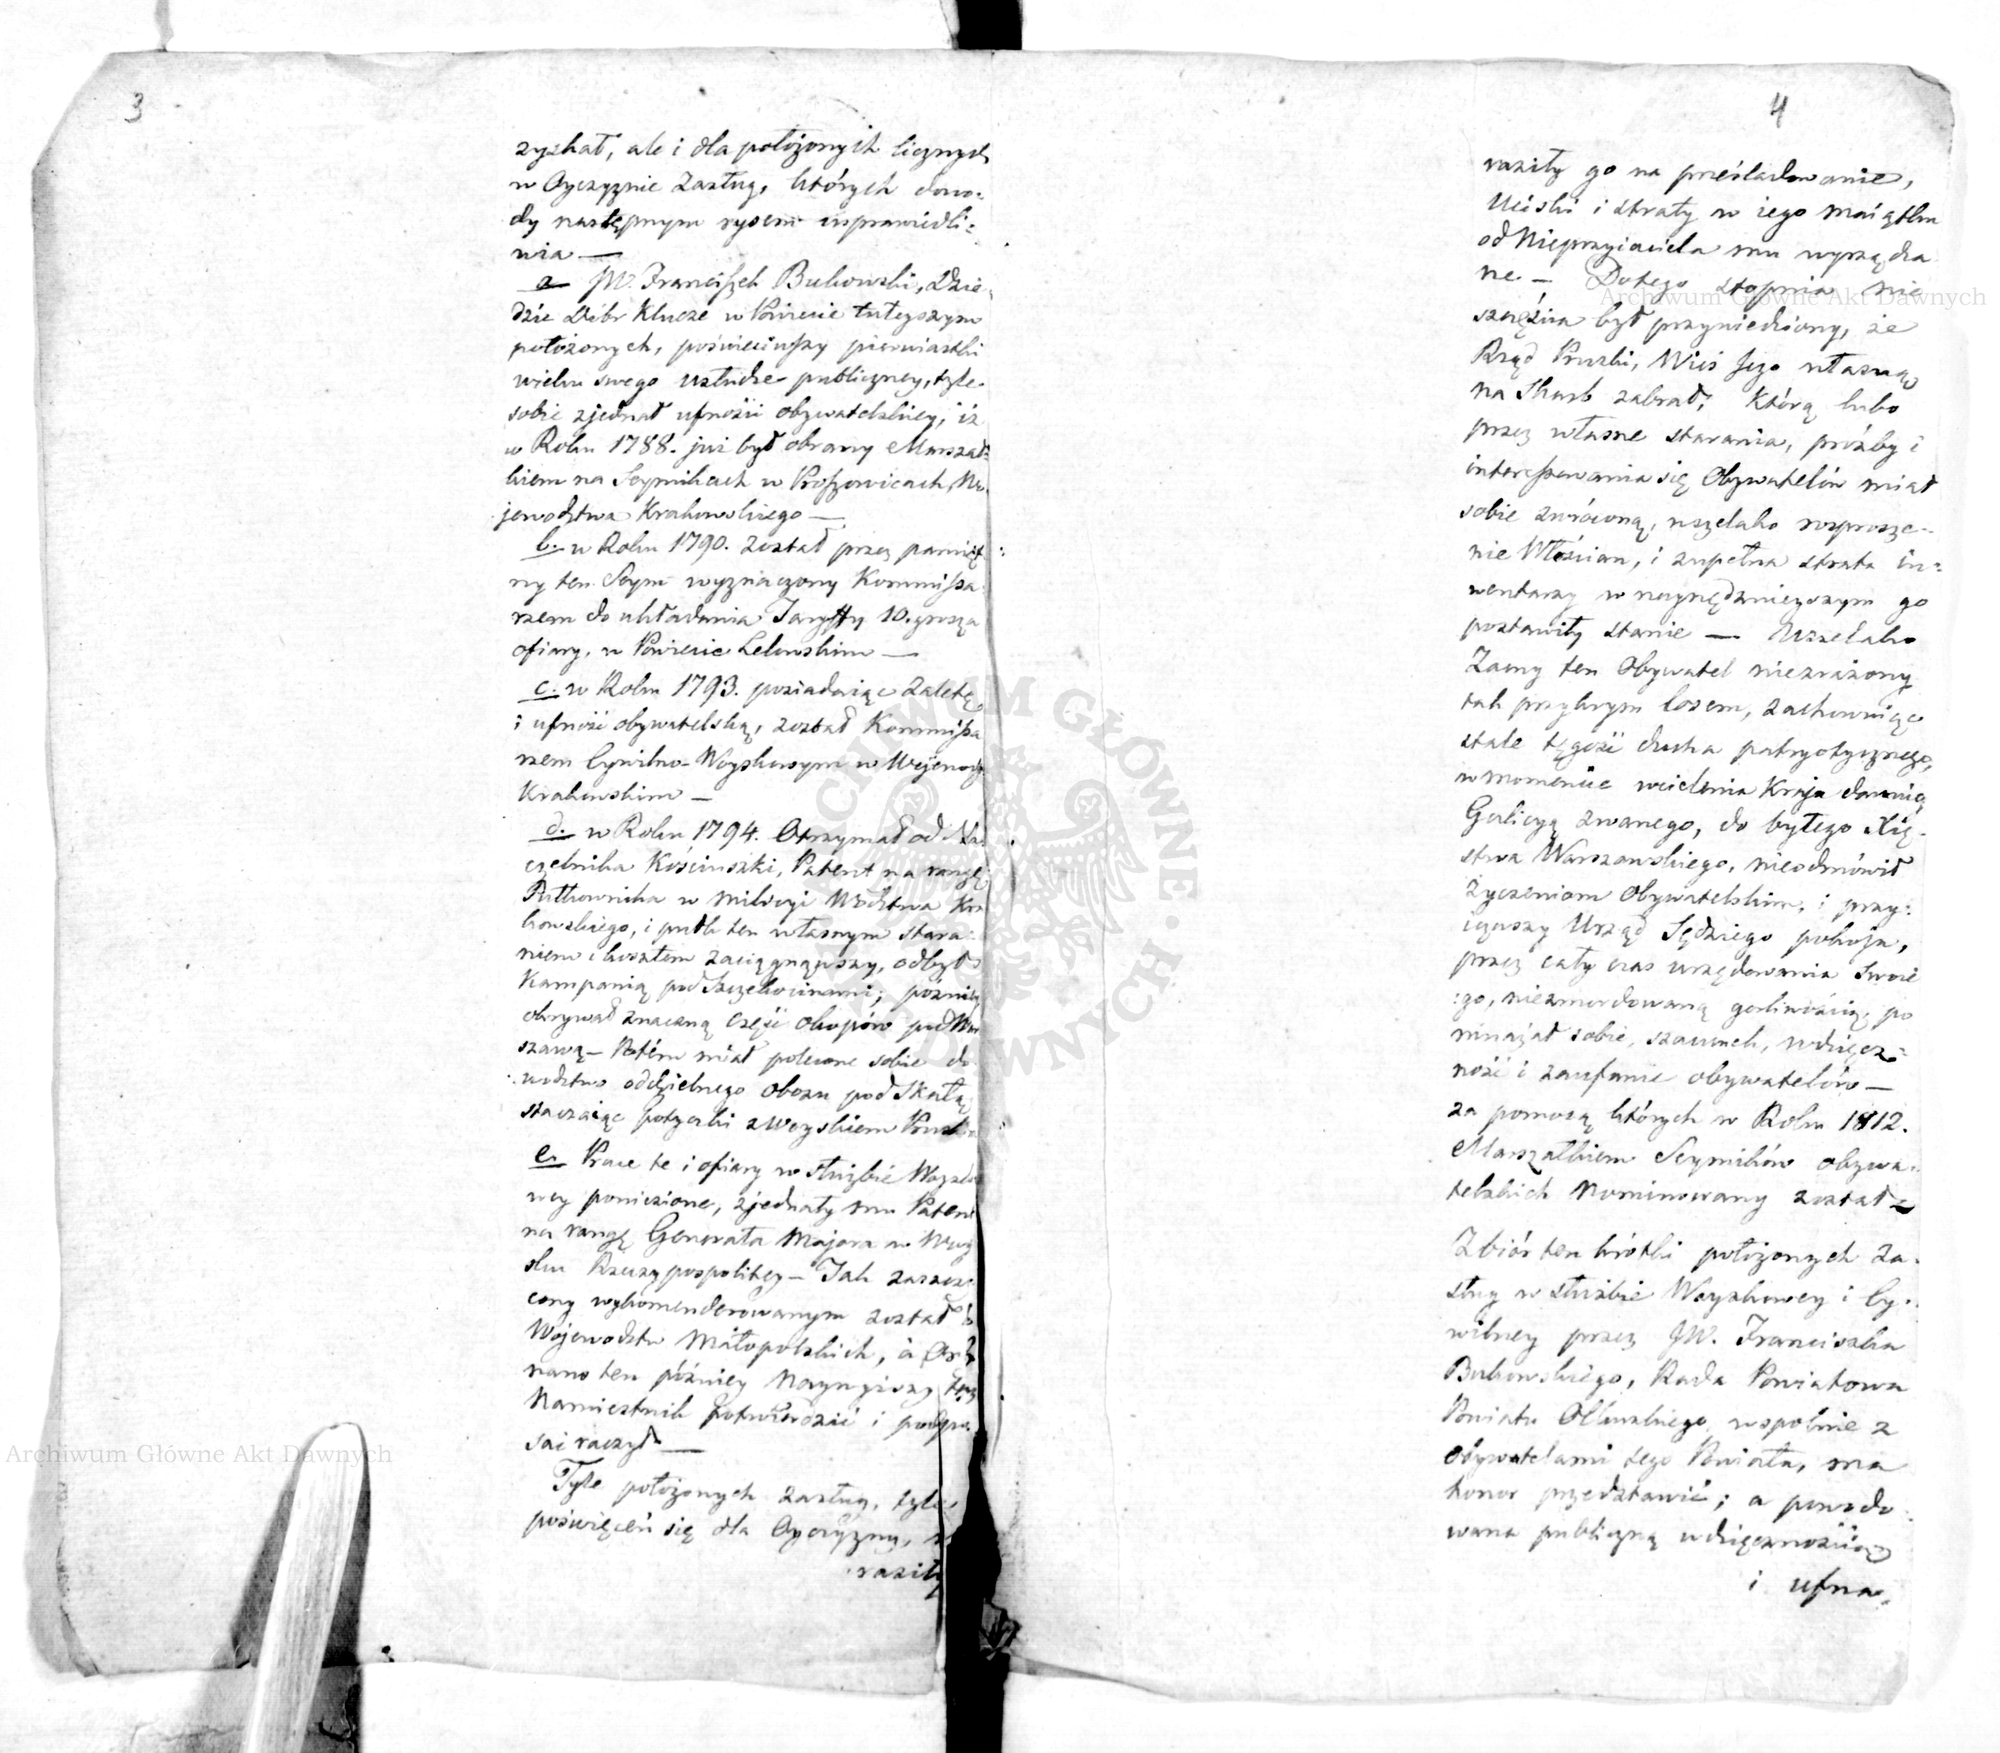 3
zyskał, ale i dla położonych licznych
w Oyczyznie zasług, których dowo-
dy następnym rysem usprawiedli-
wia —
a JW. Franciszek Bukowski, Dzie-
dzic Dóbr Klucze w Powiecie tuteyszym
położonych, poświęciwszy pierwiastki
wieku swego usłudze publiczney, tyle
sobie zjednał ufności obywatelskiey, iż
w Roku 1788. już był obrany Marszał-
kiem na Seymikach w Proszowicach, Wo-
jewodztwa Krakowskiego —
b. w Roku 1790. został przez pamięt-
ny ten Seym wyznaczony Kommissa-
rzem do układania Taryffy 10. grosza
ofiary, w Powiecie Lelowskim —
c. w Roku 1793. posiadaiąc zaletę
i ufność obywatelską, został Kommissa
rzem Cywilno-Woyskowym w Wojewodz
Krakowskim —
d. w Roku 1794. Otrzymał od Na
czelnika Kościuszki, Patent na rangę
Pułkownika w milicyi Wództwa Kra
kowskiego, i pułk ten własnym stara-
niem i kosztem zaciągnąwszy, odbył
Kampanią pod Szczekocinami; poźniey
okrywał znaczną część okopów pod War
szawą — Potém miał polecone sobie do
wództwo oddzielnego obozu pod Skałą,
staczaiąc potyczki z woyskiem Prusk
e. Prace te i ofiary w służbie Woysko
wey poniesione, zjednały mu Patent
na rangę Generała Majora w Woy
sku Rzeczypospolitey — Tak zaszcz
cony wykomenderowanym został
Wojewodztw Małopolskich, a
nans ten później Nayjaśniejszy
Namiestnik potwierdzić i podpi
sać raczył —
Tyle położonych zasług, tyle
poświęceń się dla Oyczyzny,
raziły
4
raziły go na prześladowanie,
Uciski i straty w iego maiątku
od Nieprzyiaciela mu wyrządza
ne — Do tego stopnia nie
szczęścia był przywiedziony, że
Rząd Pruski, Wieś Jego własną
na Skarb zabrał, którą lubo
przez własne starania, prośby i
interessowania się Obywatelów miał
sobie zwróconą, wszelako rozprosze-
nie Włościan, i zupełna strata in-
wentarzy w naynędznieyszym go
postawiły stanie — Wszelako
Zacny ten Obywatel niezrażony
tak przykrym losem, zachowuiąc
stale tęgość ducha patryotycznego,
w momencie wcielenia Kraju dawniey
Galicyą zwanego, do byłego Xię-
stwa Warszawskiego, nieodmówił
życzeniom Obywatelskim, i przy-
iąwszy Urząd Sędziego pokoju,
przez cały czas urzędowania Swoie
:go, niezmordowaną gorliwością, po
mnażał sobie, szacunek, wdzięcz-
ność i zaufanie obywatelów —
za pomocą których w Roku 1812.
Marszałkiem Seymików obywa-
telskich Nominowany został —
Zbiór ten krótki położonych za-
sług w służbie Woyskowey i Cy-
wilney przez JW. Franciszka
Bukowskiego, Rada Powiatowa
Powiatu Olkuskiego wspolnie z
obywatelami tego Powiatu, ma
honor przedstawić; a powodo-
wana publiczną wdzięcznością
i ufna,
Archiwum Główne Akt Dawnych
Archiwum Główne Akt Dawnych
ARCHIWUM GŁÓWNE AKT DAWNYCH